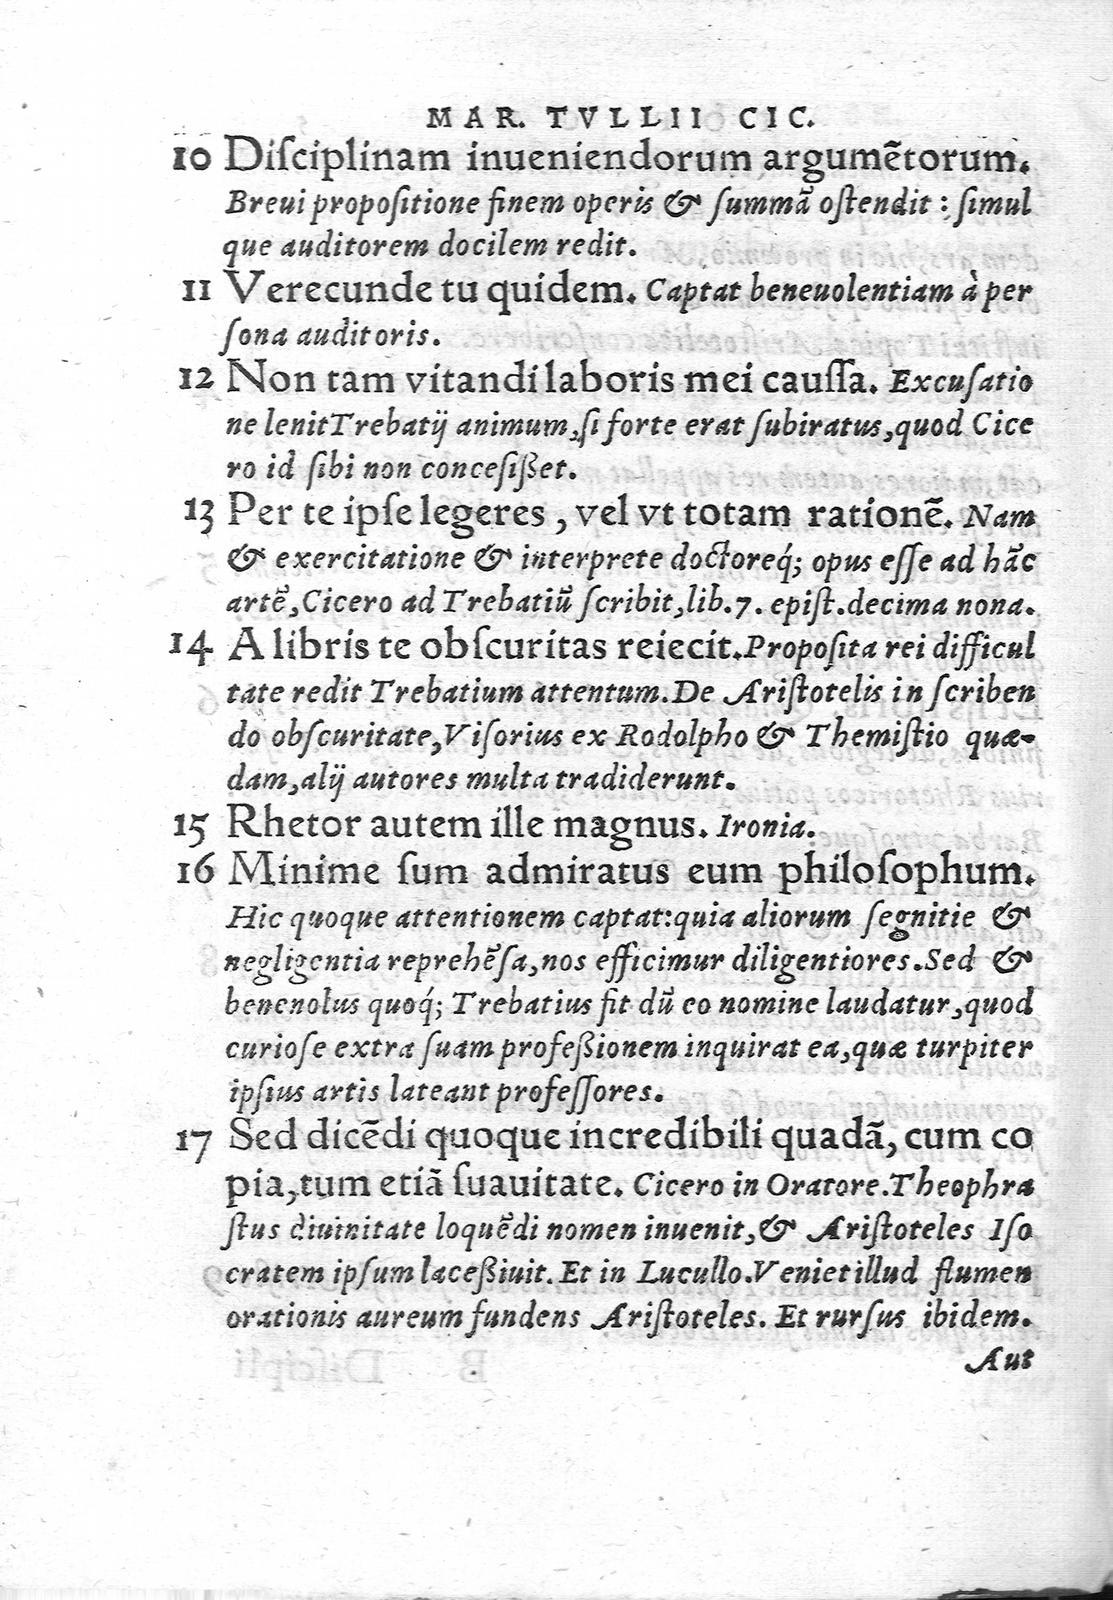 MAR. TVLLII CIC.
10 Diſciplinam inueniendorum argumẽtorum.
Breui propoſitione finem operis & ſummã oſtendit : ſimul
que auditorem docilem redit.
11 Verecunde tu quidem. Captat beneuolentiam à per
ſona auditoris.
12 Non tam vitandi laboris mei cauſſa. Excuſatio
ne lenit Trebatij animum, ſi forte erat ſubiratus, quod Cice
ro id ſibi non conceſißet.
13 Per te ipſe legeres, vel vt totam rationẽ. Nam
& exercitatione & interprete doctoreq́; opus eſſe ad hãc
artẽ, Cicero ad Trebatiũ ſcribit, lib. 7. epiſt. decima nona.
14 A libris te obſcuritas reiecit. Propoſita rei difficul
tate redit Trebatium attentum. De Ariſtotelis in ſcriben
do obſcuritate, Viſorius ex Rodolpho & Themiſtio quæ-
dam, alij autores multa tradiderunt.
15 Rhetor autem ille magnus. Ironia.
16 Minime ſum admiratus eum philoſophum.
Hic quoque attentionem captat: quia aliorum ſegnitie &
negligentia reprehẽſa, nos efficimur diligentiores. Sed &
benenolus quoq́; Trebatius fit dũ eo nomine laudatur, quod
curioſe extra ſuam profeßionem inquirat ea, quæ turpiter
ipſius artis lateant profeſſores.
17 Sed dicẽdi quoque incredibili quadã, cum co
pia, tum etiã ſuauitate. Cicero in Oratore. Theophra
ſtus diuinitate loquẽdi nomen inuenit, & Ariſtoteles Iſo
cratem ipſum laceßiuit. Et in Lucullo. Veniet illud flumen
orationis aureum fundens Ariſtoteles. Et rurſus ibidem.
Aut